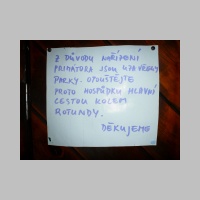 Z DŮVODU NAŘÍZENÍ
PRIMÁTORA JSOU UZAVŘENY
PARKY. OPOUŠTĚJTE
PROTO HOSPŮDKU HLAVNÍ
CESTOU KOLEM
ROTUNDY.
DĚKUJEME